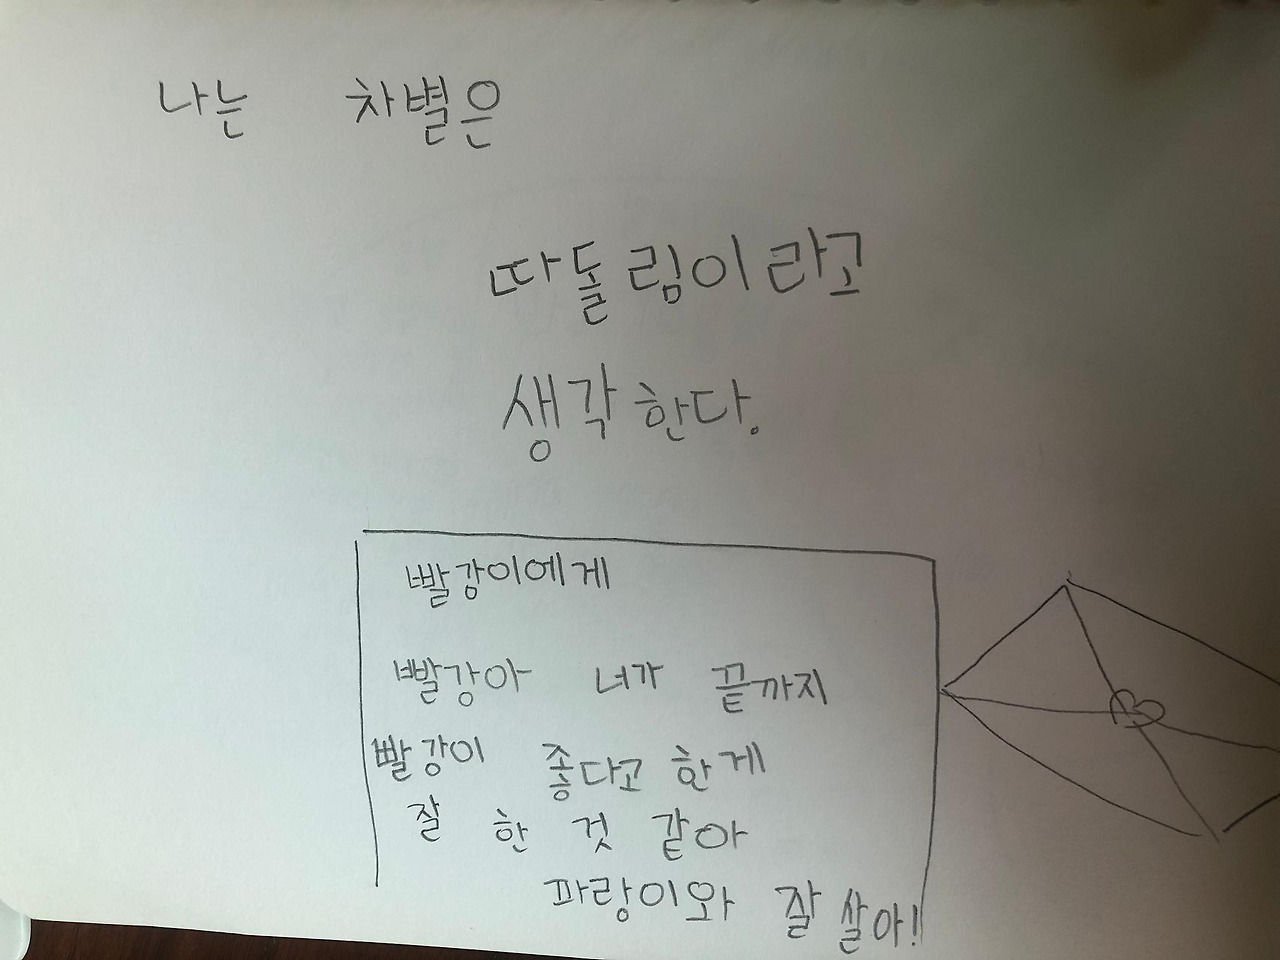 나는 차별은
따돌림이라고
생각한다.
빨강이에게
빨강아 너가 끝까지
빨강이 좋다고 한게
잘 한 것 같아
파랑이와 잘 살아!